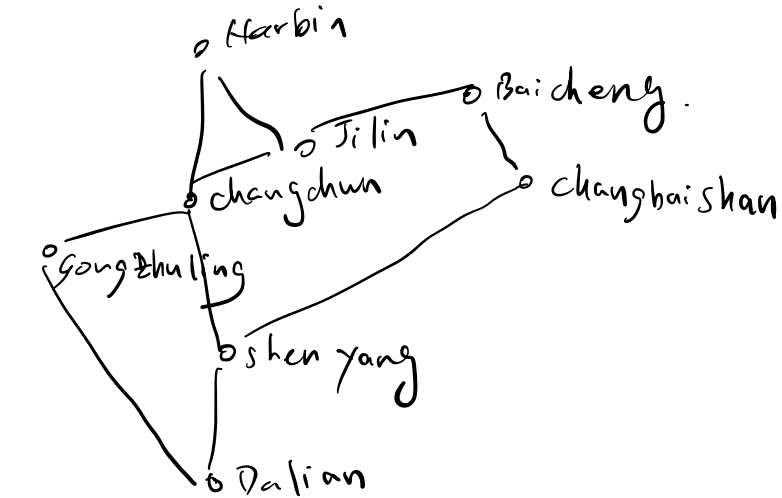 Harbin
Baicheng.
Jilin
changchun
changbaishan
Gongzhuling
shenyang
Dalian